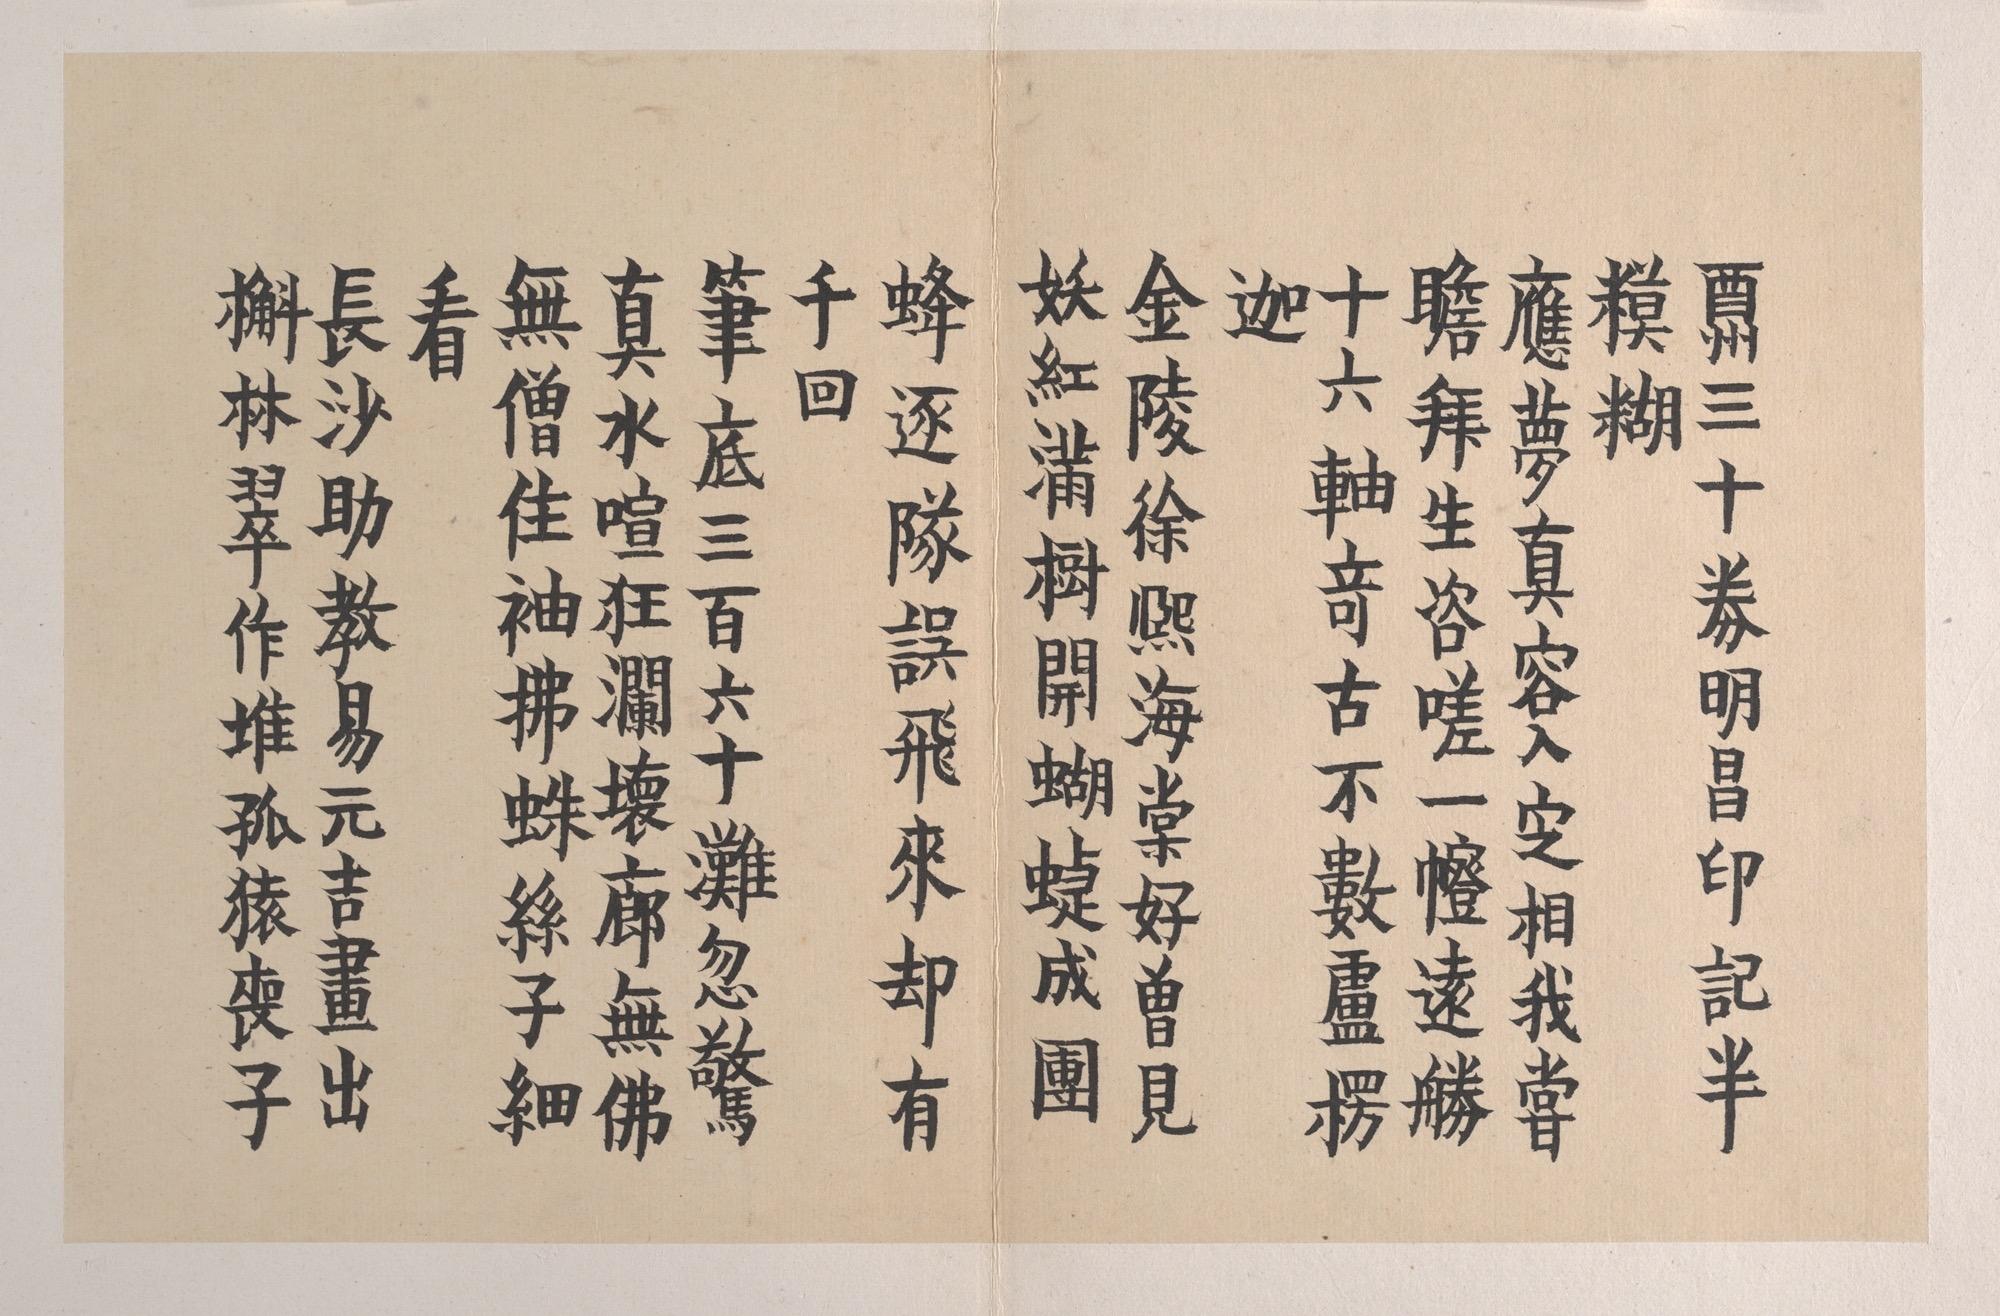 三十券明昌印記半
糢糊
應夢真容入定相我嘗
瞻拜生咨嗟一遠勝
十六軸竒古不數盧楞
迦
金陵徐熙海棠好曾見
妖紅滿樹開蝴蝶成團
蜂逐隊誤飛來却有
千回
筆底三百六十灘忽驚
真水喧狂瀾壞廊無佛
無僧住袖拂蛛絲子細
看
長沙助教易元吉畫出
槲林翠作堆孤猿喪子